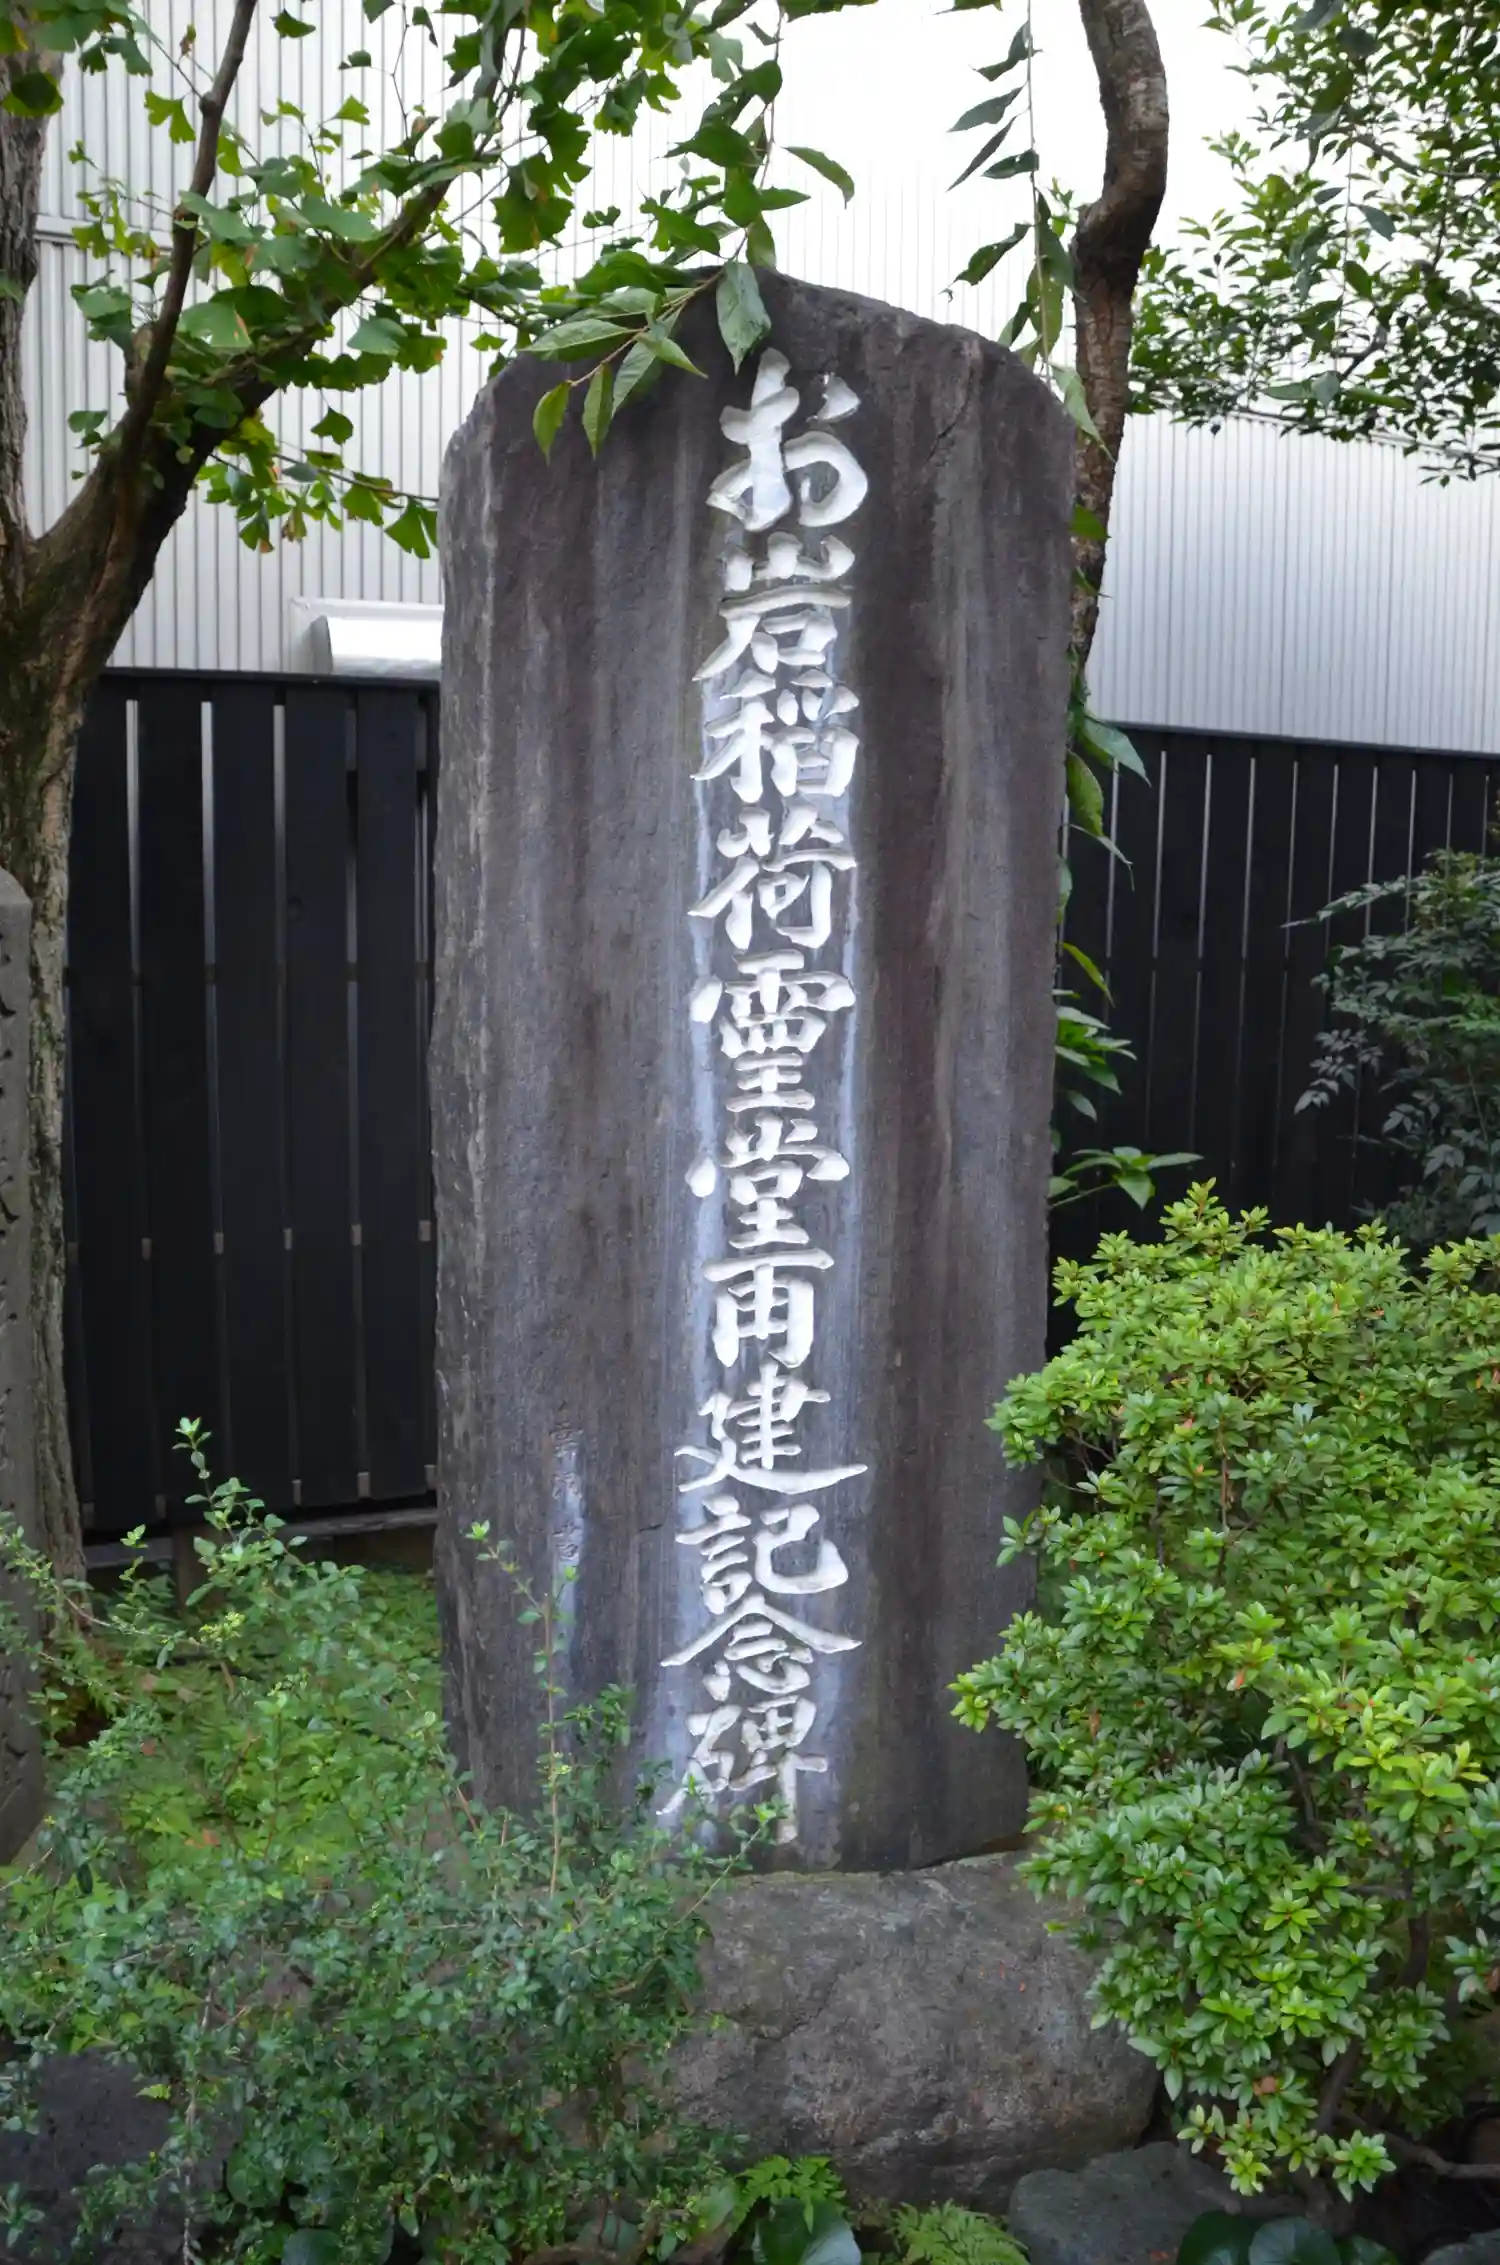 お岩稲荷霊堂再建記念碑